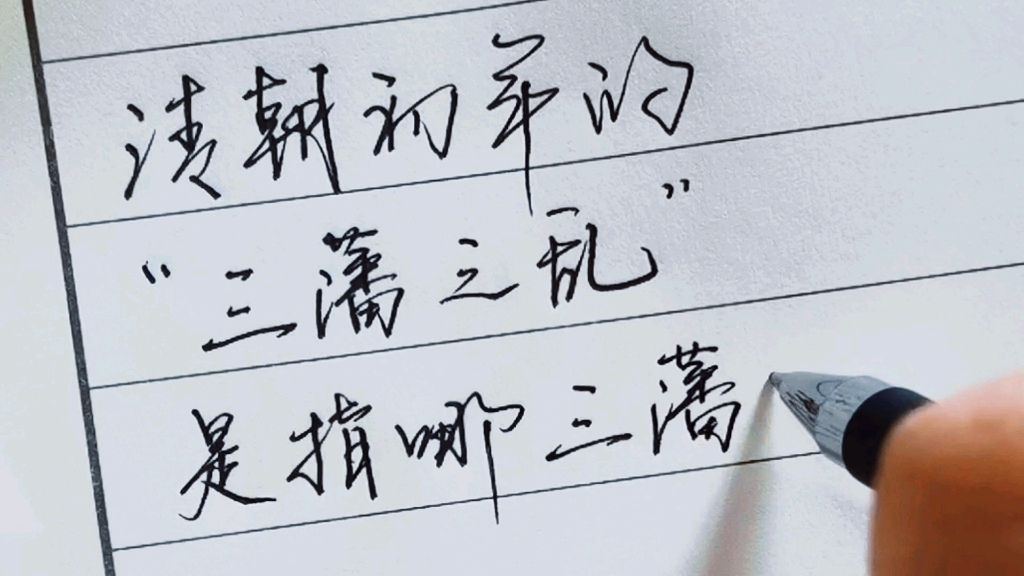 清朝初年的
“三藩之乱”
是指哪三藩